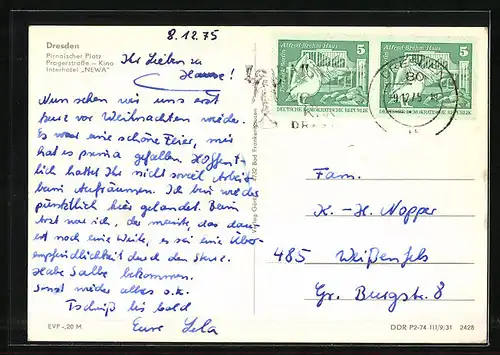 8.12.75
Dresden
Pirnaischer Platz
Pragerstraße – Kino
Interhotel „NEWA"
Ihr Lieben zu
Hause!
Nun sehen wir uns erst
kurz vor Weihnachten wieder.
Es war eine schöne Feier, mir
hat es prima gefallen. Hoffent-
lich hattet Ihr nicht soviel Arbeit
beim Aufräumen. Ich bin wieder
pünktlich hier gelandet. Beim
Arzt war ich, der meinte, das dau-
ert noch eine Weile, es sei eine Über-
empfindlichkeit durch den
Habe Salbe bekommen.
Sonst wieder alles o.k.
Tschüß bis bald
Eure
EVP -,20 M
Alfred-Brehm-Haus
5
DEUTSCHE DEMOKRATISCHE REPUBLIK
Alfred-Brehm-Haus
5
DEUTSCHE DEMOKRATISCHE REPUBLIK
80
Fam.
K.-H. Nopper
485 Weißenfels
Gr. Burgstr. 8
DDR P2-74 III/9/31 2428